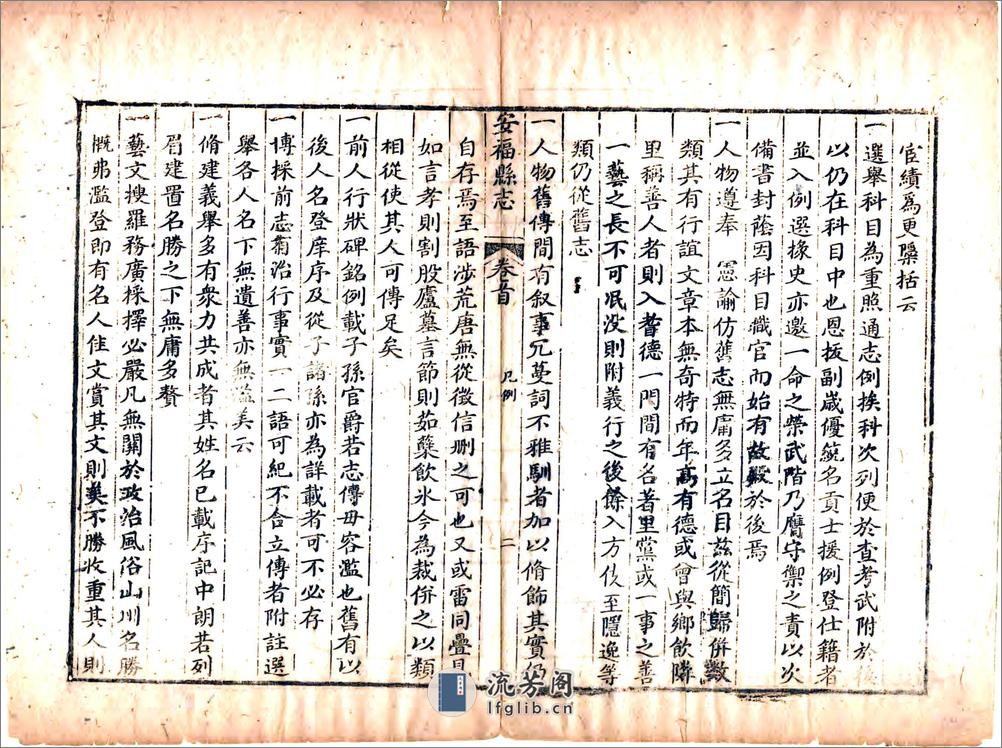 宦績爲更櫽括云
一選舉科目爲重照通志例挨科次列便於查考武附於後
以仍在科目中也恩拔副歲優統名貢士援例登仕籍者
並入例選掾史亦邀一命之榮武階乃膺守禦之責以次
備書封蔭因科目職官而始有故殿於後焉
一人物遵奉　憲諭仿舊志無庸多立名目茲從簡歸併數
類其有行誼文章本無奇特而年高有德或曾與鄉飲隣
里稱善人者則入耆德一門間有名著里黨或一事之善
一藝之長不可泯没則附義行之後餘入方伎至隱逸等
類仍從舊志
一人物舊傳間有叙事冗蔓詞不雅馴者加以脩飾其實仍
安福縣志　卷首　凡例　二
自存焉至語涉荒唐無從徵信刪之可也又或雷同疊見
如言孝則割股廬墓言節則茹蘗飲氷今爲裁併之以類
相從使其人可傳足矣
一前人行狀碑銘例載子孫官爵若志傳毋容濫也舊有以
後人名登庠序及從子諸孫亦爲詳載者可不必存
一博採前志蒭治行事實一二語可紀不合立傳者附註選
舉各人名下無遺善亦無溢美云
一脩建義舉多有衆力共成者其姓名已載序記中朗若列
眉建置名勝之下無庸多贅
一藝文搜羅務廣採擇必嚴凡無關於政治風俗山川名勝
概弗濫登即有名人佳文賞其文則美不勝收重其人則
流芳阁
lfglib.cn